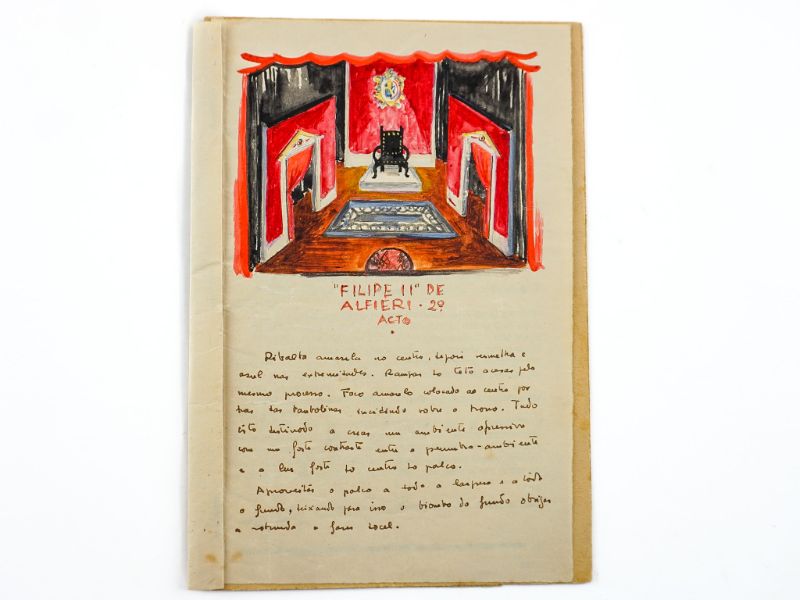 "FILIPE II" DE
ALFIERI · 2º
ACTO
Ribalta amarela no centro, depois vermelha e
azul nas extremidades. Rampas do teto acesas pelo
mesmo processo. Foco amarelo colocado ao centro por
tras das bambolinas incidindo sobre o trono. Tudo
isto destinado a crear um ambiente opressivo
com um forte contraste entre a penumbra-ambiente
e a luz forte do centro do palco.
Aproveitar o palco a toda a largura e a todo
o fundo, deixando para isso o biombo do fundo
a rotunda a fazer